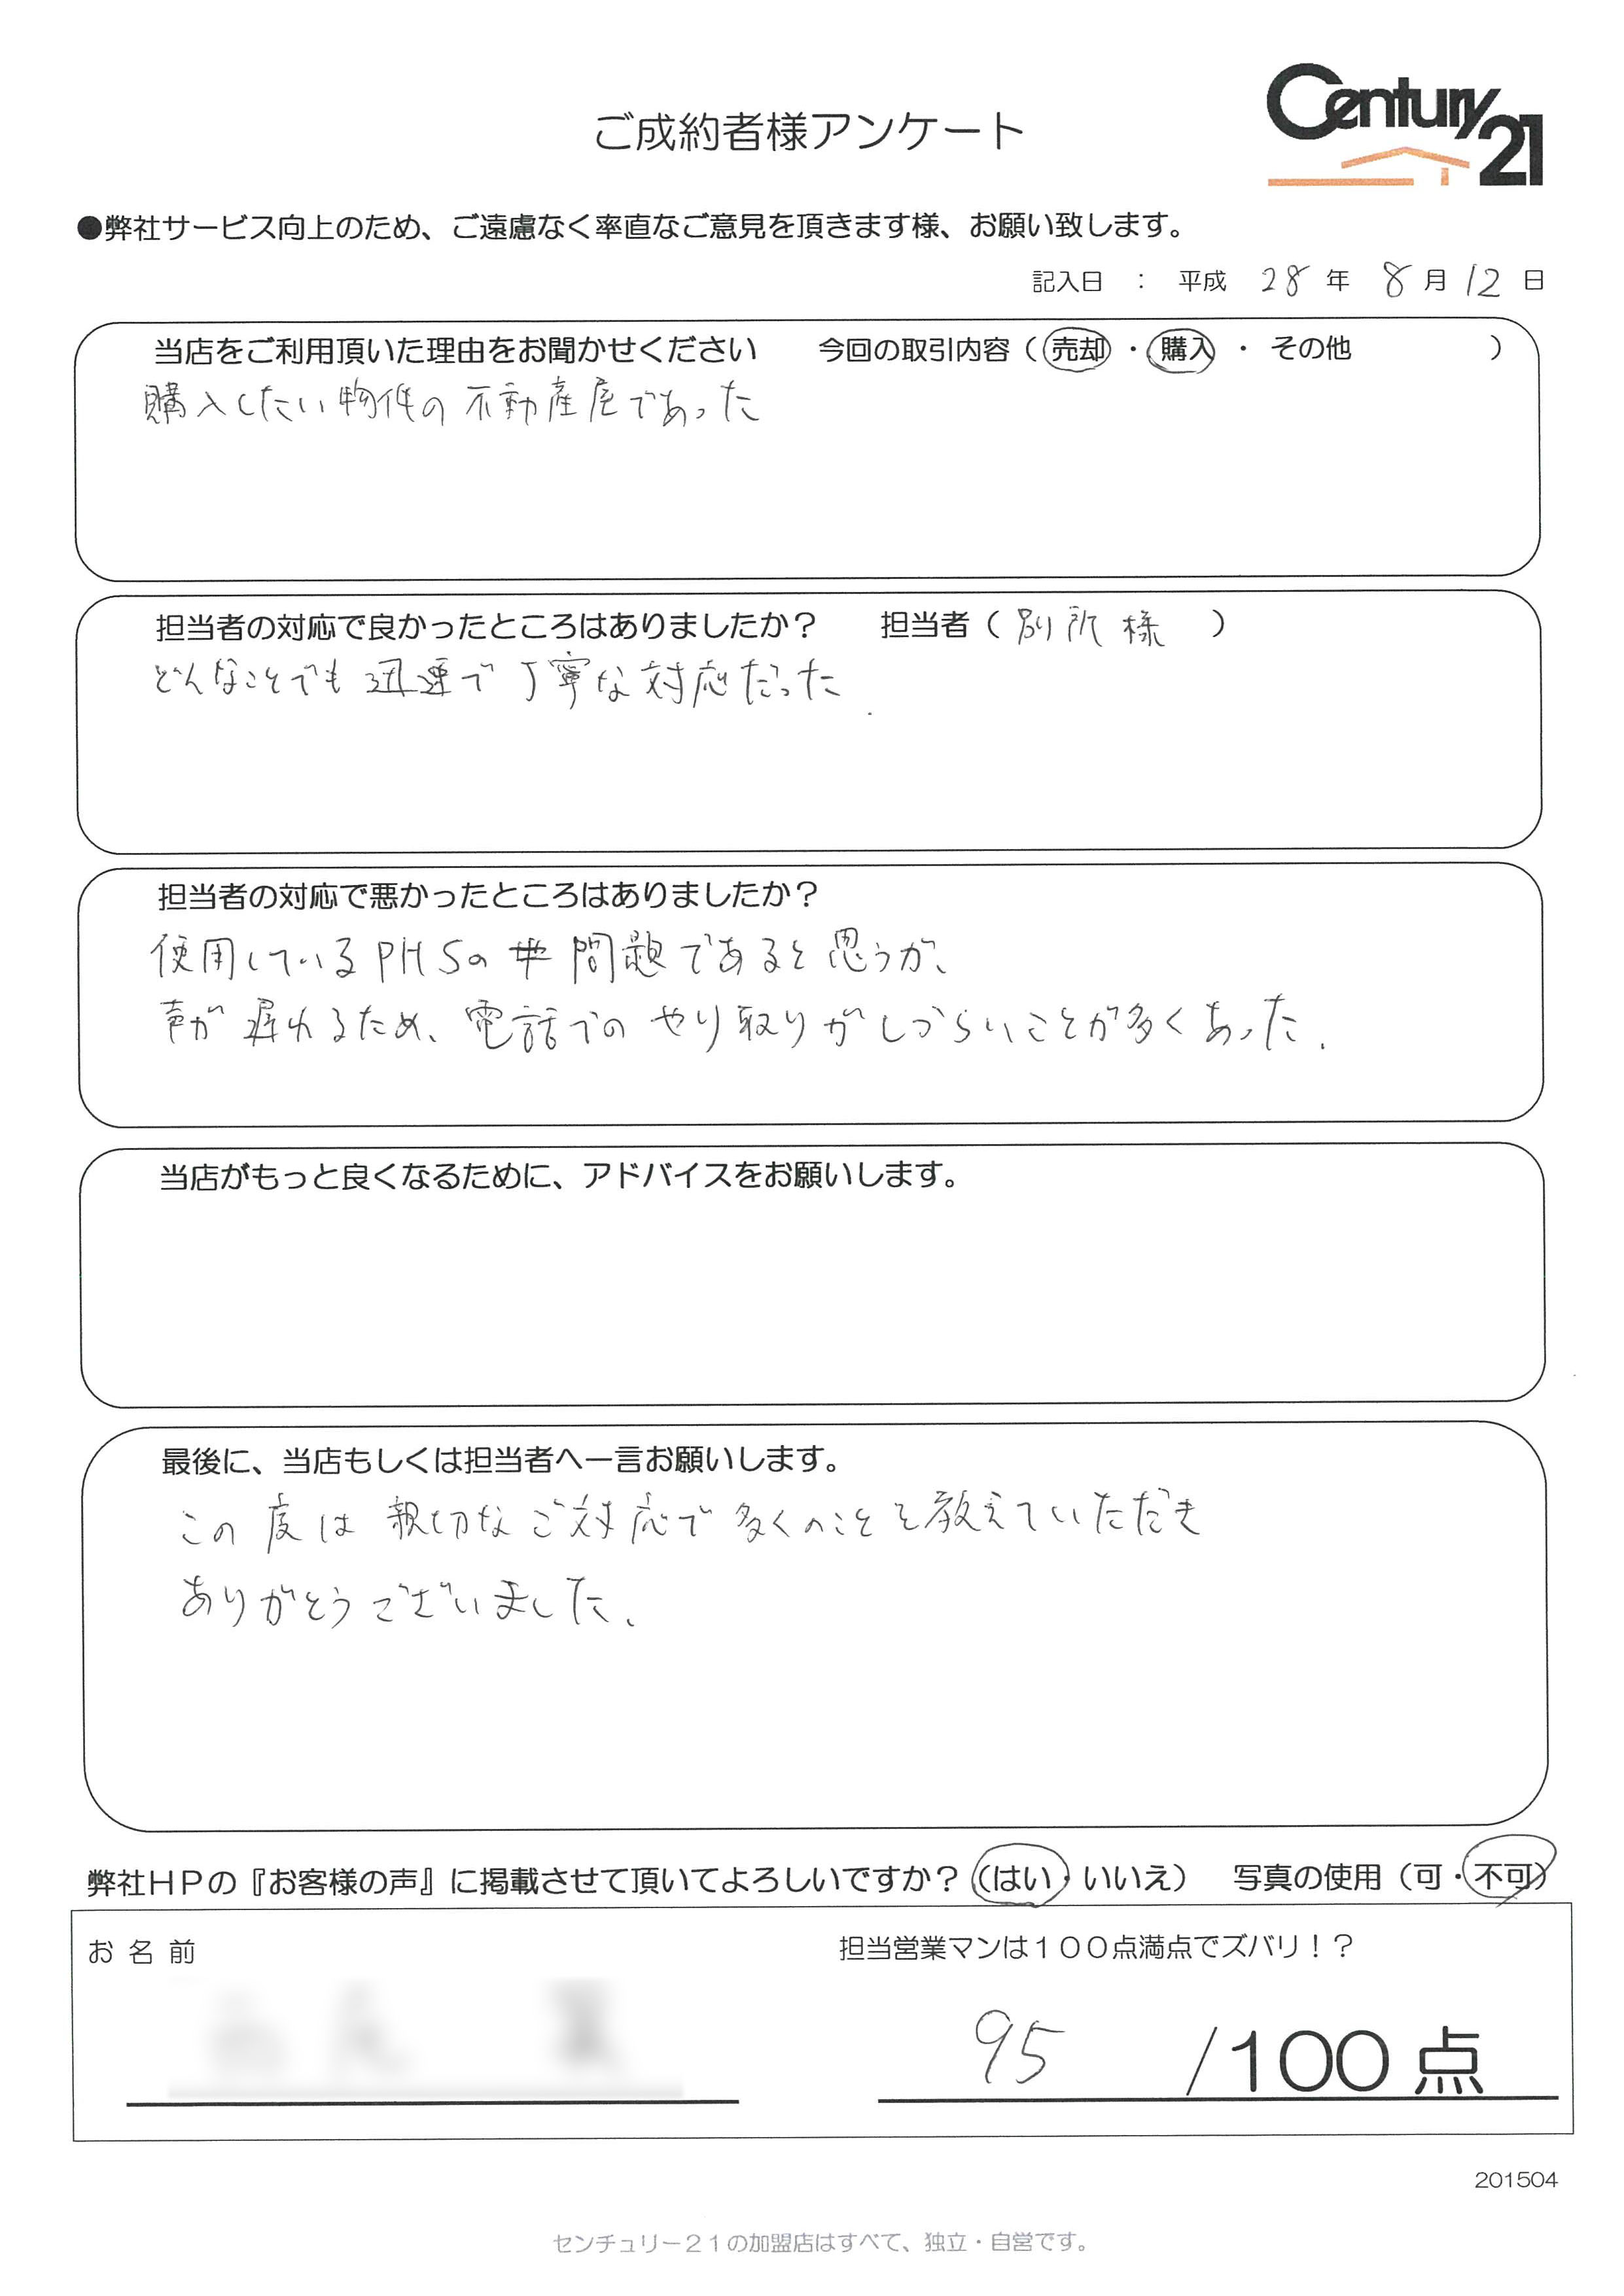 ご成約者様アンケート
Century 21
●弊社サービス向上のため、ご遠慮なく率直なご意見を頂きます様、お願い致します。
記入日 ： 平成 28 年 8 月 12 日
当店をご利用頂いた理由をお聞かせください 今回の取引内容（売却・購入・その他 ）
購入したい物件の不動産屋であった
担当者の対応で良かったところはありましたか？ 担当者（別所様 ）
どんなことでも迅速で丁寧な対応だった.
担当者の対応で悪かったところはありましたか？
使用しているPHSの問題であると思うが、
声が遅れるため、電話でのやり取りがしづらいことが多くあった.
当店がもっと良くなるために、アドバイスをお願いします。
最後に、当店もしくは担当者へ一言お願いします。
この度は親切なご対応で多くのことを教えていただき
ありがとうございました.
弊社ＨＰの『お客様の声』に掲載させて頂いてよろしいですか？（はい・いいえ） 写真の使用（可・不可）
お名前 担当営業マンは１００点満点でズバリ！？
95 /100点
201504
センチュリー２１の加盟店はすべて、独立・自営です。